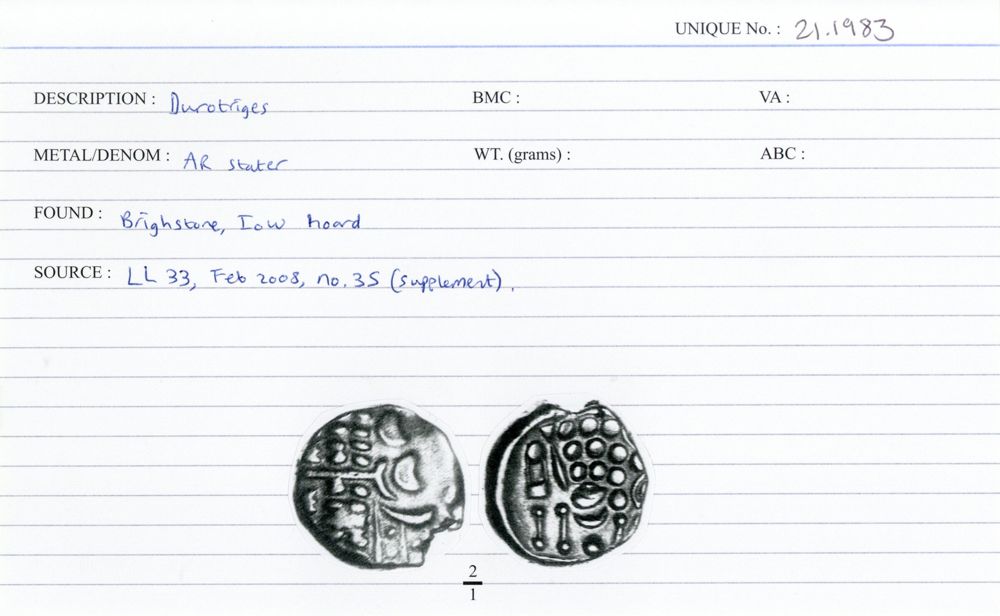 UNIQUE No. : 21.1983
DESCRIPTION : Durotriges BMC : VA :
METAL/DENOM : AR stater WT. (grams) : ABC :
FOUND : Brighstone, IoW hoard
SOURCE : LL 33, Feb 2008, no. 35 (supplement).
2
1